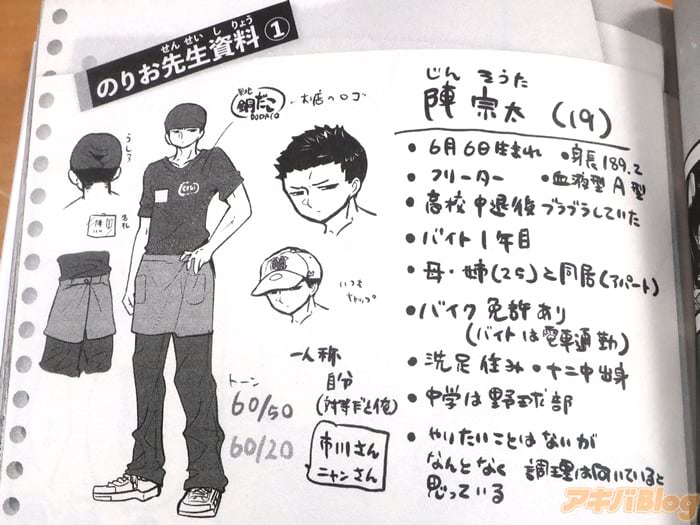 せんせいしりょう
のりお先生資料①
じん そうた
陣 宗太 (19)
・6月6日生まれ ・身長189.2
・フリーター ・血液型 A型
・高校中退後ブラブラしていた
・バイト1年目
・母・姉(25)と同居(アパート)
・バイク免許あり
(バイトは電車通勤)
・洗足住み ・十二中出身
・中学は野球部
・やりたいことはないが
なんとなく 調理は向いていると
思っている
銅だこ
DODACO
本店のロゴ
うしろ
名札
陣
いつも
一人称
自分
(対等だと俺)
市川さん
ニャンさん
トーン
60/50
60/20
アキバBlog